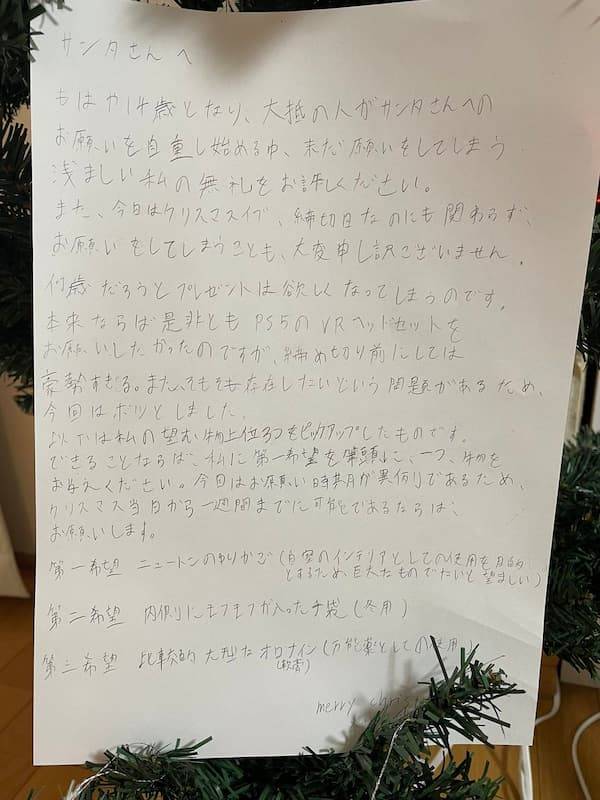 サンタさんへ
もはや14歳となり、大抵の人がサンタさんへの
お願いを自重し始める中、未だ願いをしてしまう
浅ましい私の無礼をお許しください。
また、今日はクリスマスイブ、締切日なのにも関わらず、
お願いをしてしまうことも、大変申し訳ございません。
何歳だろうとプレゼントは欲しくなってしまうのです。
本来ならば是非とも PS5のVRヘッドセットを
お願いしたかったのですが、締め切り前にしては
豪勢すぎる。また、そもそも存在しないという問題があるため、
今回はボツとしました。
以下は私の望む物上位3つをピックアップしたものです。
できることならば、私に第一希望を筆頭に、一つ、物を
お与えください。今回はお願い時期が異例であるため、
クリスマス当日から一週間までに可能であるならば、
お願いします。
第一希望 ニュートンのゆりかご (自室のインテリアとしての使用を目的
とするため 巨大なもので ないと望ましい)
第二希望 内側にモフモフが入った手袋 (冬用)
第三希望 比較的大型なオロナイン (万能薬としての使用)
(軟膏)
merry